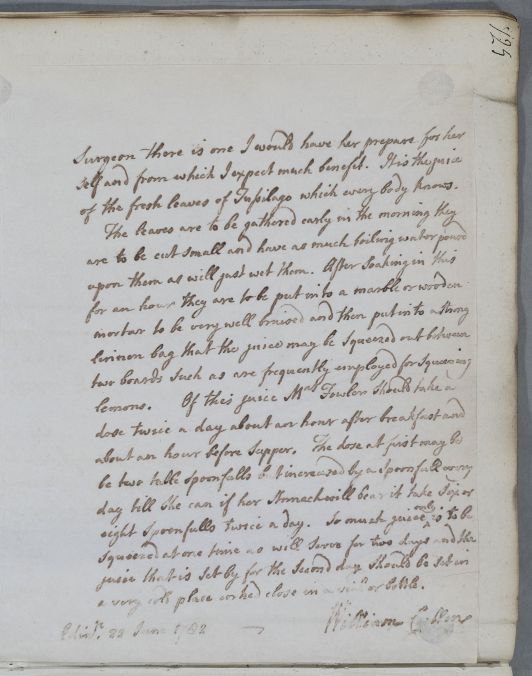 Surgeon there is one I would have her prepare for her
self and from which I expect much benefit. It is the juice
of the fresh leaves of Tussilago which every body knows.
The leaves are to be gathered early in the morning they
are to be cut small and have as much boiling water poured
upon them as will just wet them. After soaking in this
for an hour they are to be put into a marble or wooden
mortar to be very well bruised and then put into a strong
linnen bag that the juice may be squeezed out between
two boards such as are frequently employed for squeezing
lemons. Of this juice Mrs Fowler should take a
dose twice a day about an hour after breakfast and
about an hour before supper. The dose at first may be
be two table spoonfulls but increased by a spoonfull every
day till she can if her stomach will bear it take six or
eight spoonfulls twice a day. So much juice only is to be
squeezed at one time as will serve for two days and the
juice that is set by for the second day should be set in
a very cold place corked close in a vial or bottle.
William Cullen
Edinr. 22 June 1782